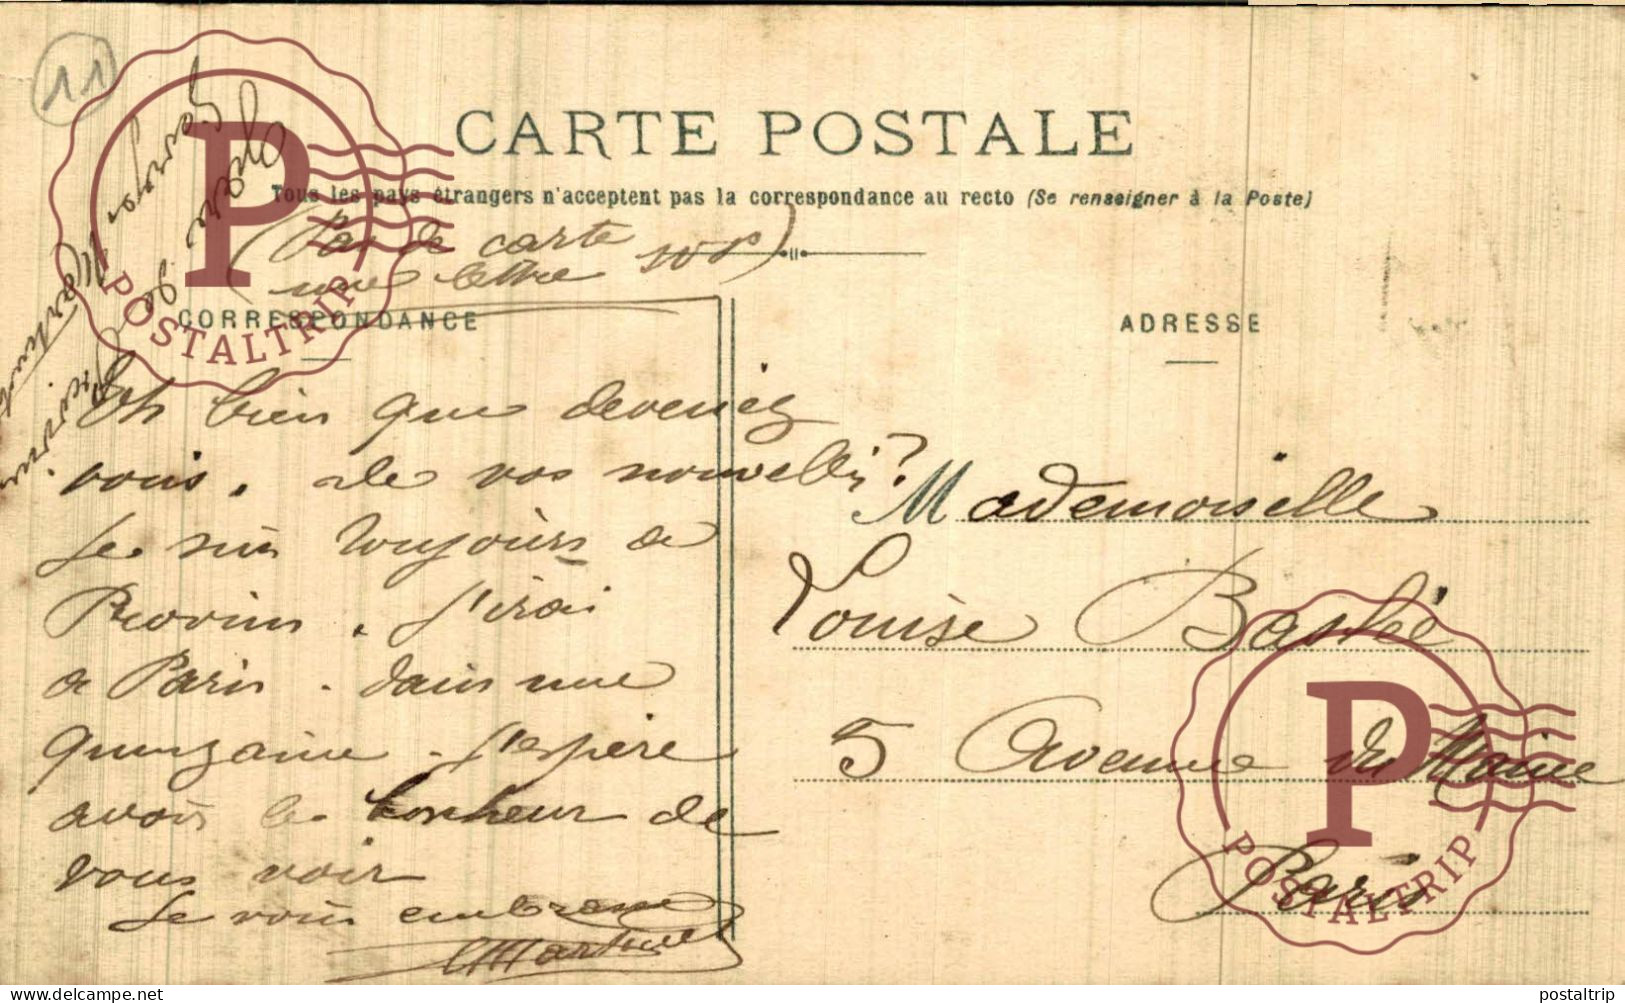 11
CARTE POSTALE
Tous les pays étrangers n'acceptent pas la correspondance au recto (Se renseigner à la Poste)
(Pas de carte
une lettre SVP)
CORRESPONDANCE
ADRESSE
Eh bien que deveniez
vous. de vos nouvelles?
Je suis toujours a
Provins. J'irai
a Paris. dans une
quinzaine. J'espère
avoir le bonheur de
vous voir
Je vous embrasse
Mademoiselle
Louise
5 Avenue du Maine
Paris
P
POSTALTRIP
P
POSTALTRIP
www.delcampe.net
postaltrip